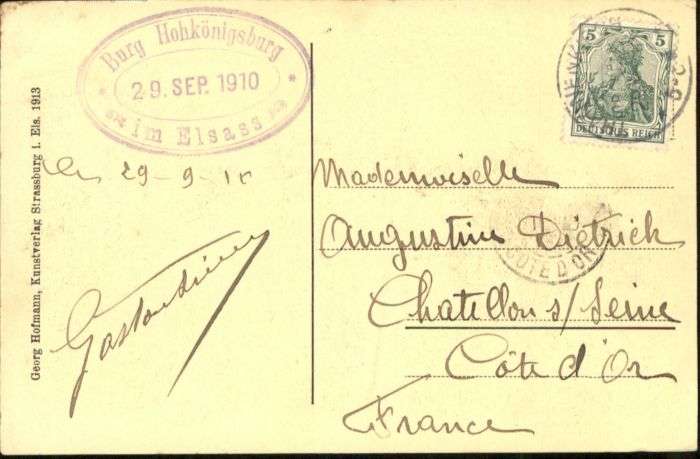 Burg Hohkönigsburg
29. SEP. 1910
im Elsass
5 5
DEUTSCHES REICH
29-9-10
Georg Hofmann, Kunstverlag Strassburg i. Els. 1913
Mademoiselle
Augustine Dietrich
COTE D'OR
Chatillon s/ Seine
Côte d'Or
France